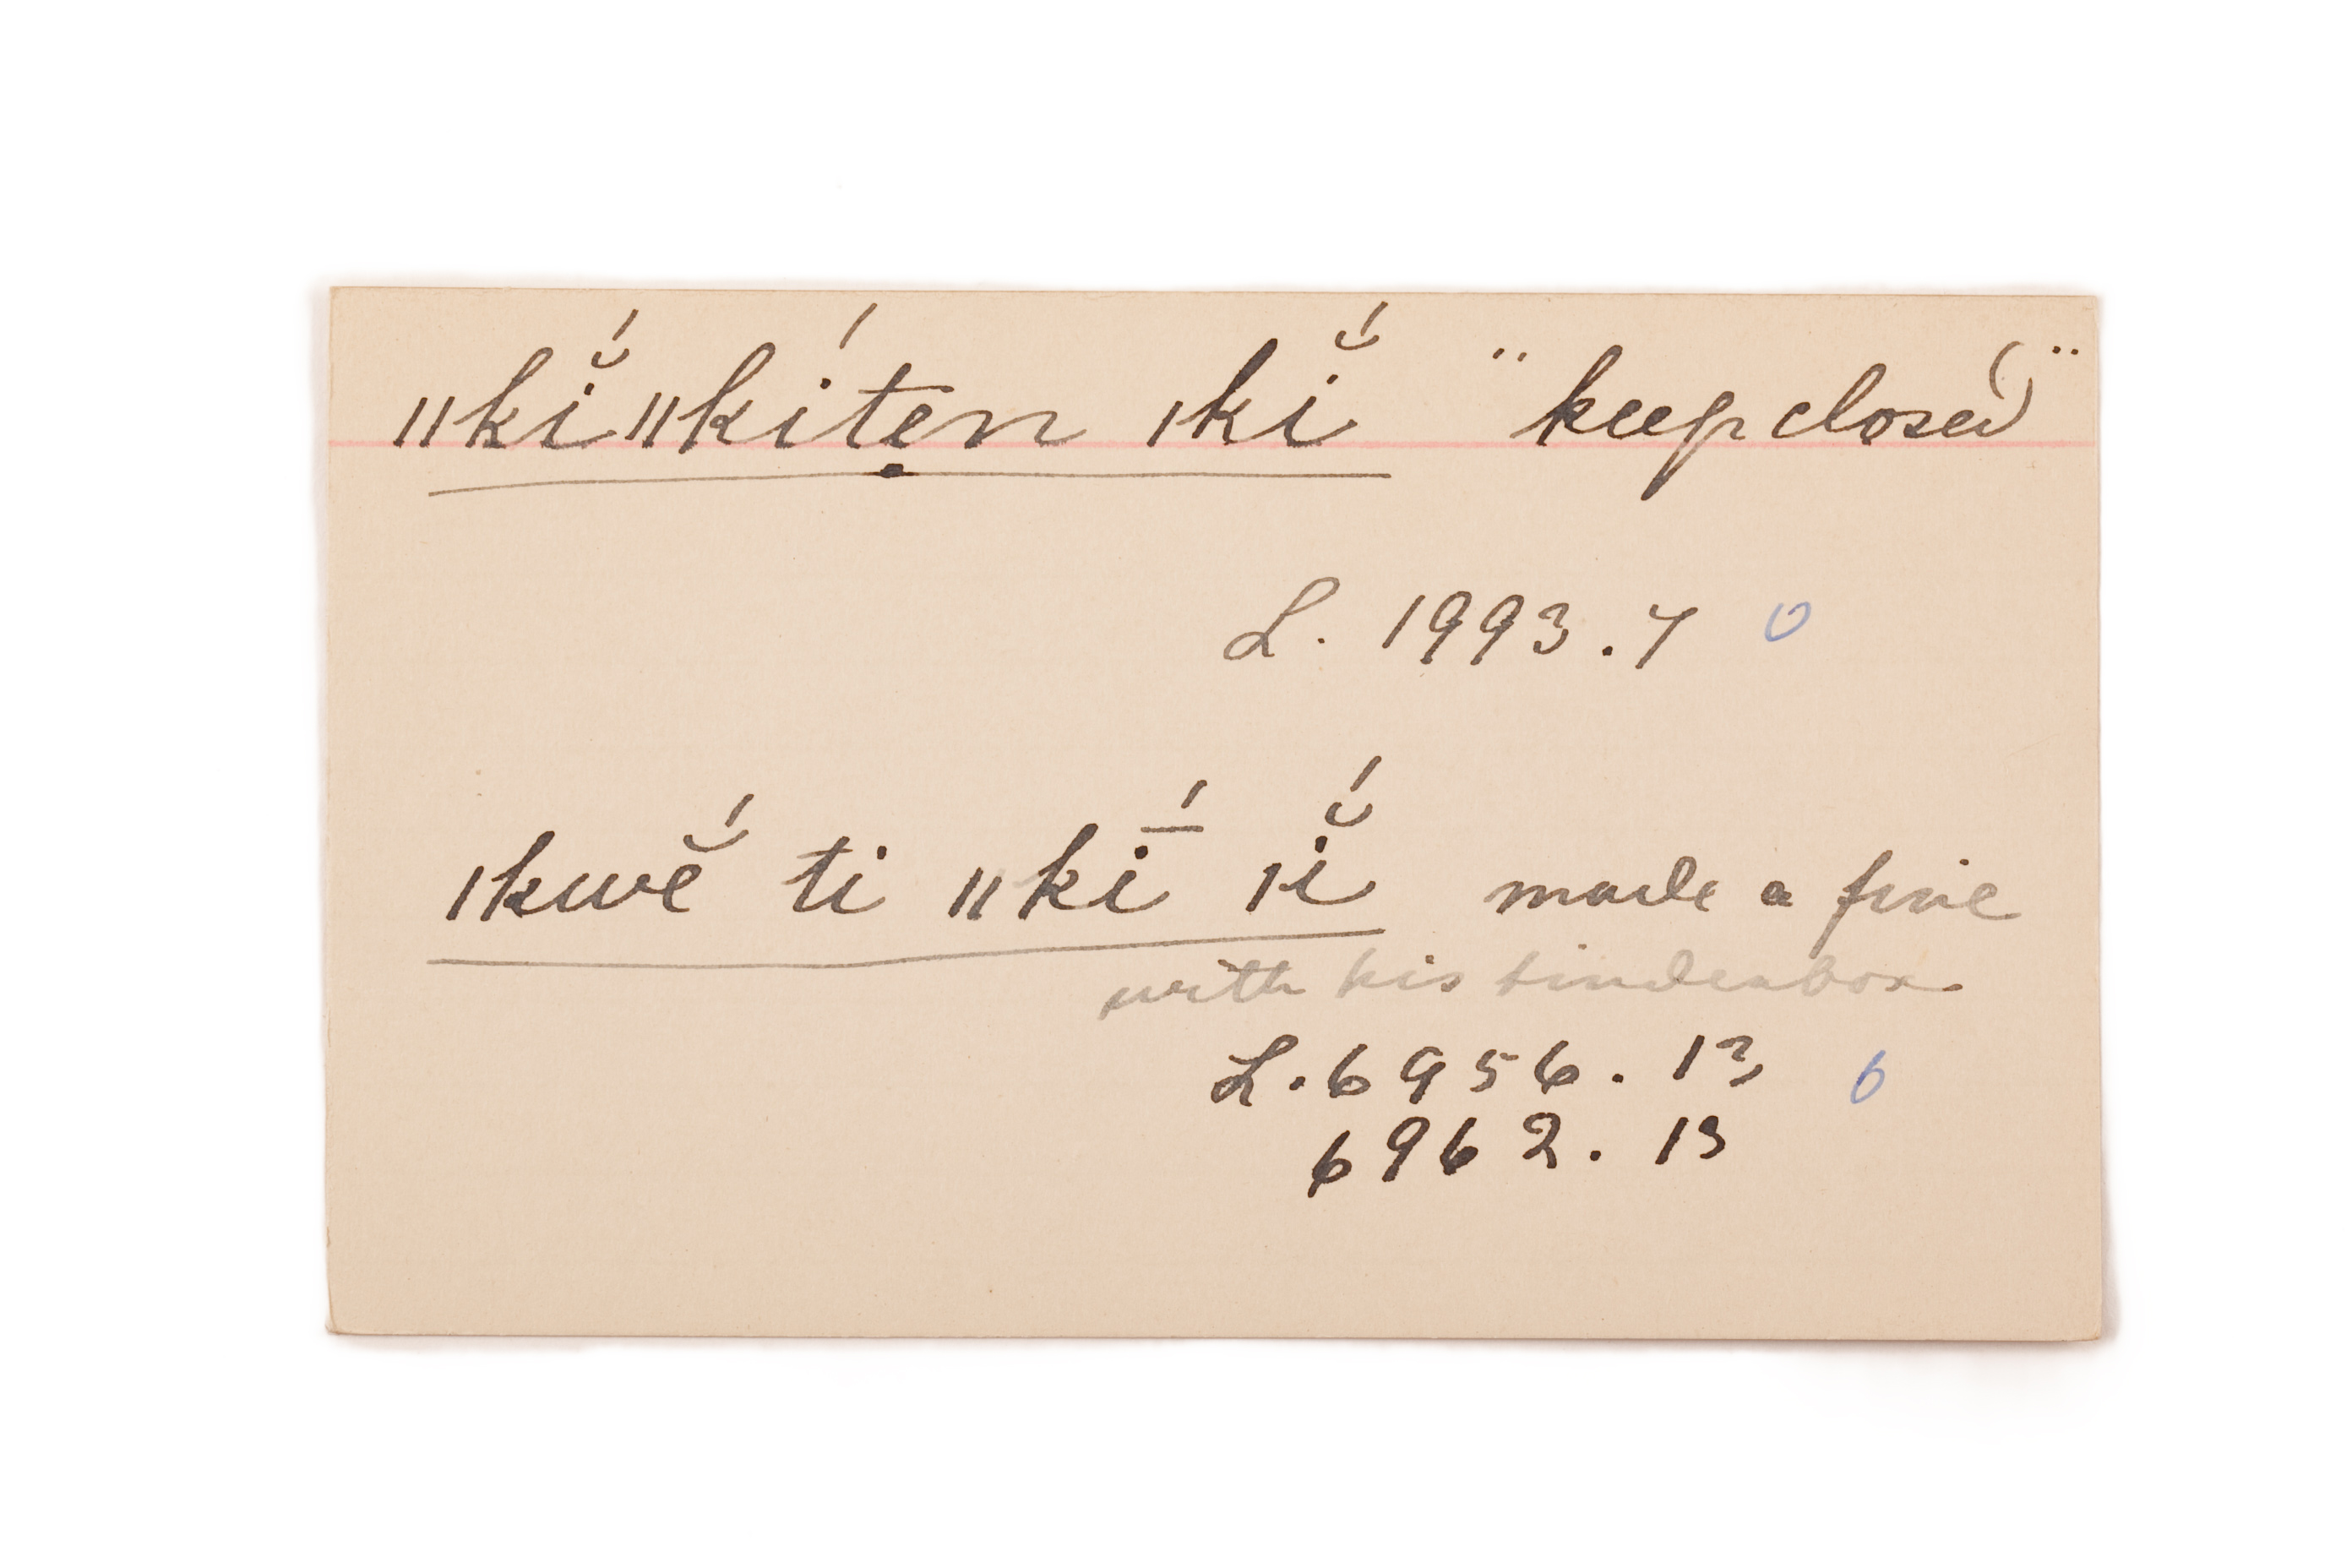 ǁkĭ́ǁkíten̥ ǀkĭ́ "keep closed"
L. 1993.7 0
ǀkwĕ́ ti ǁkī́ ǀĭ́ made a fire
with his tinderbox
L. 6956. 13 6
6962. 13